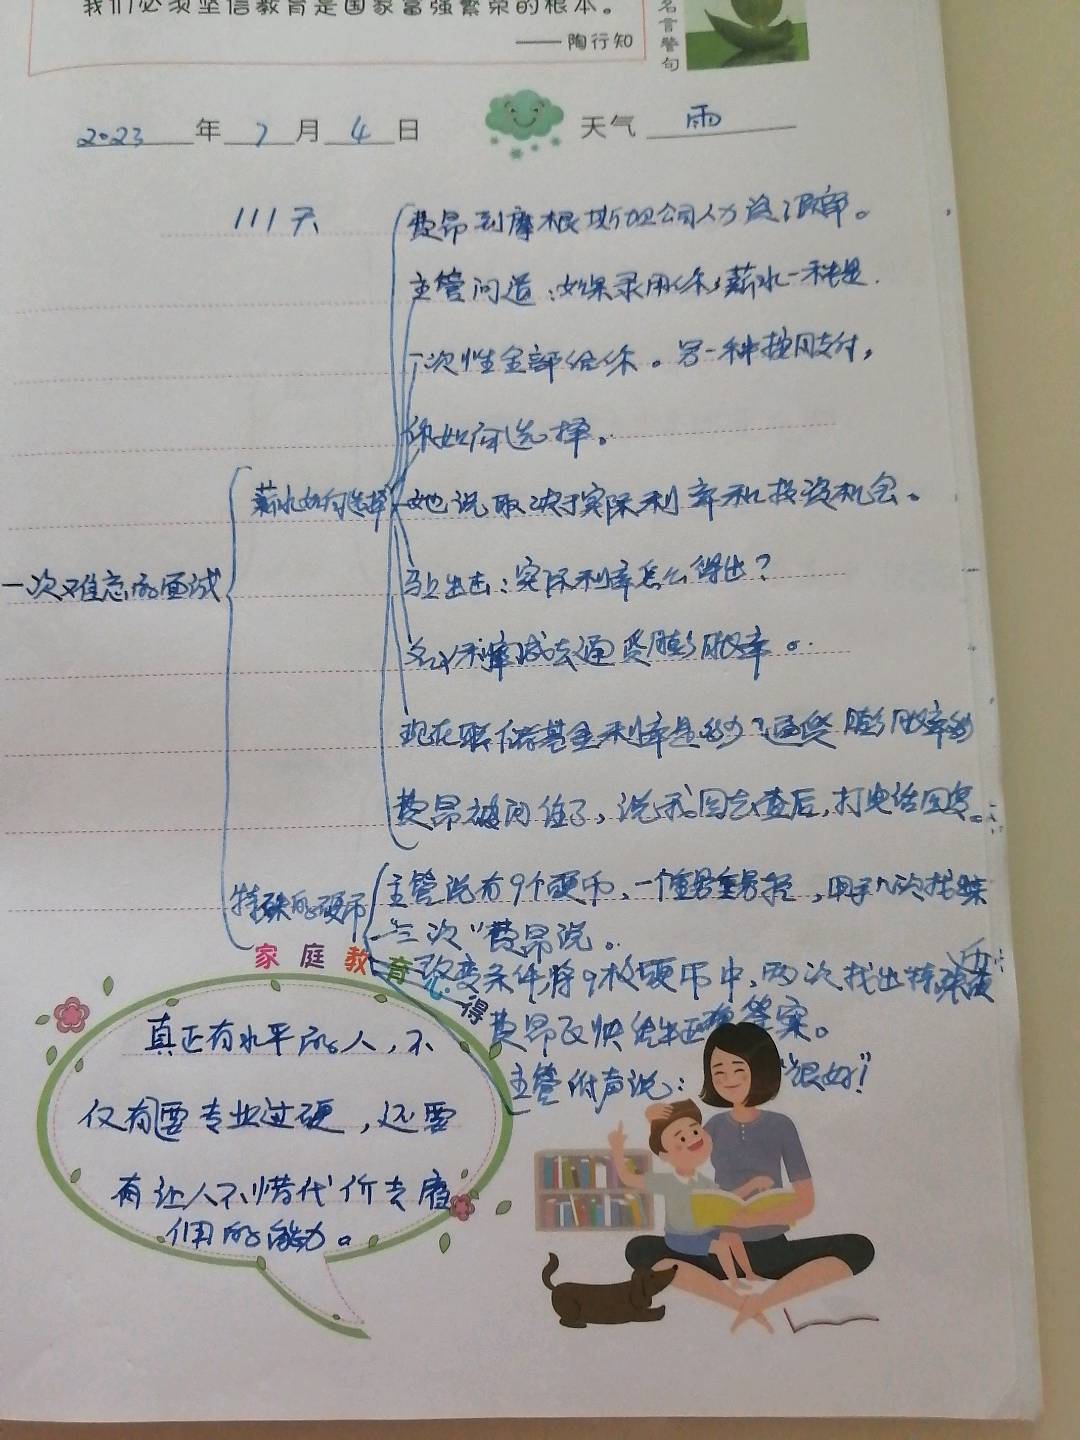 我们必须坚信教育是国家富强繁荣的根本。
——陶行知
名言警句
2023年7月4日 天气 雨
111天
费昂到摩根斯坦公司人力资源部。
主管问道:如果录用你,薪水一种是
一次性全部给你。另一种按月支付,
你如何选择。
薪水如何选择
她说取决于实际利率和投资机会。
马上出击:实际利率怎么得出?
一次难忘的面试
名义利率减去通货膨胀率。
现在联储基金利率是多少?通货膨胀率多少
费昂被问住了,说我回去查后,打电话回复。
特殊的硬币
主管说有9个硬币,一个重量重量轻,用几次找出来
"三次"费昂说。
改变条件将9枚硬币中,两次找出特殊硬币
费昂又快给出正确答案。
主管附声说:"很好!"
家庭教育心得
真正有水平的人,不
仅有要专业过硬,还要
有让人不惜代价去雇
佣的能力。